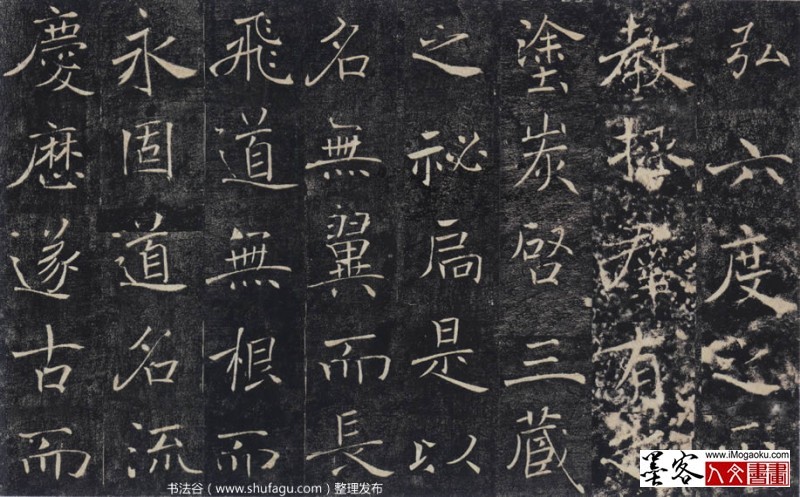 弘六度之
教拯羣有
塗炭啓三藏
之祕扃是以
名無翼而長
飛道無根而
永固道名流
慶歷遂古而
www.iMogaoku.com
墨客人文書畫
书法谷（www.shufagu.com）整理发布